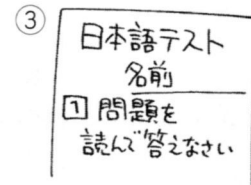 ③
日本語テスト
名前
1 問題を
読んで答えなさい